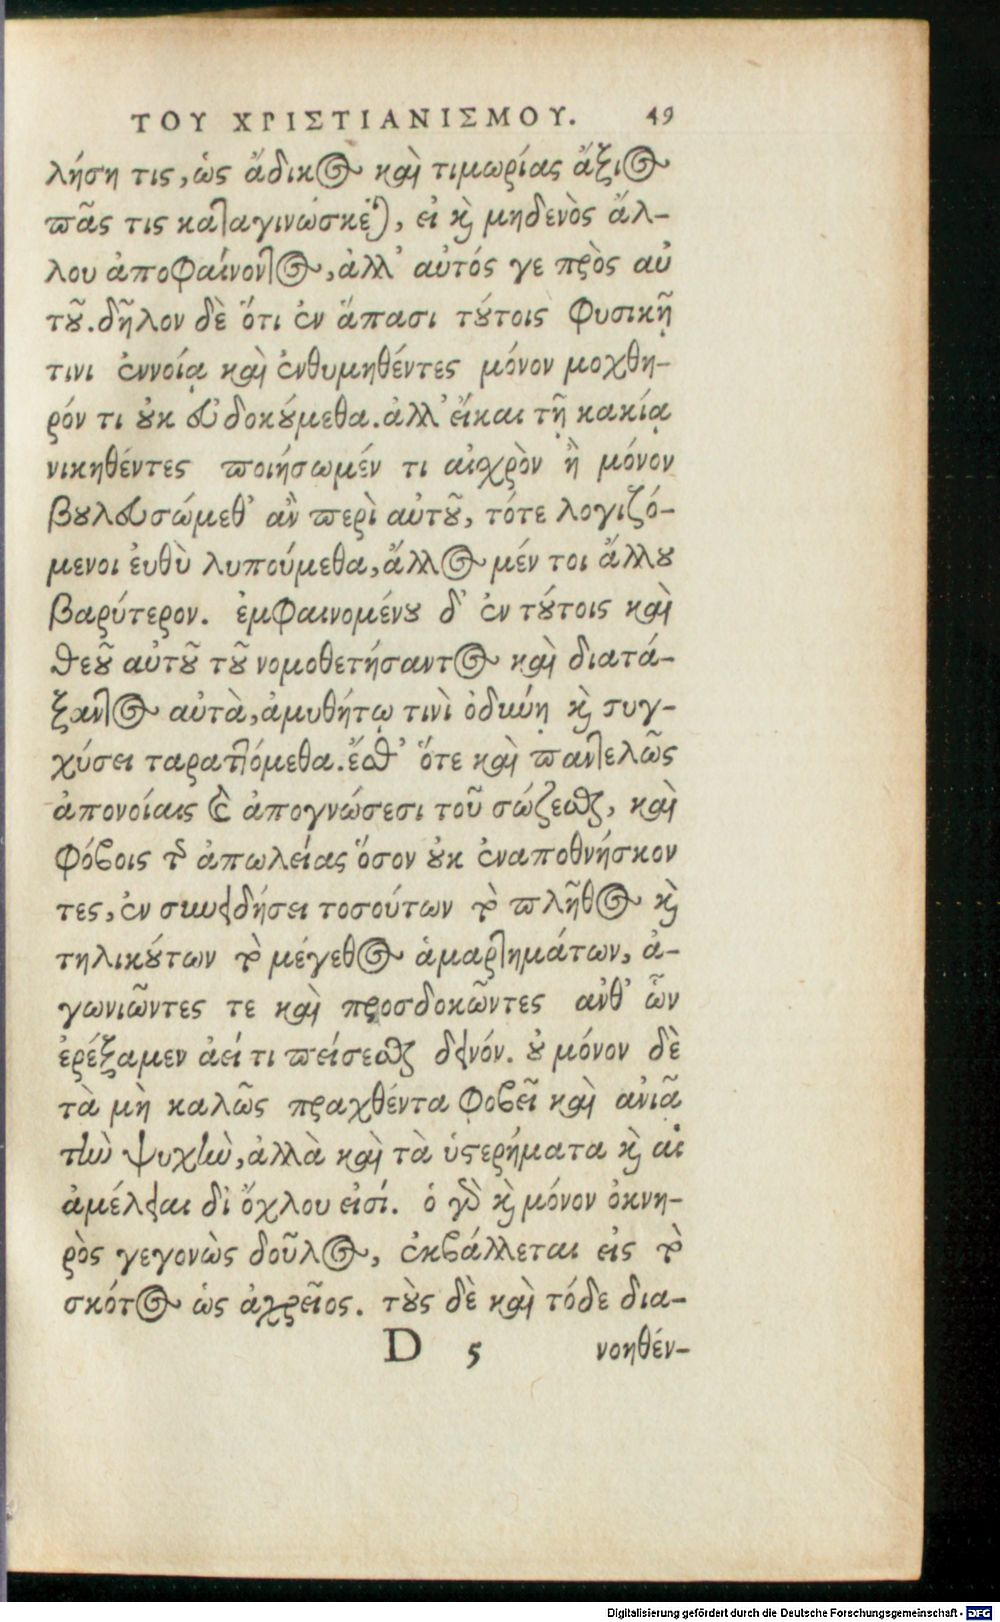 ΤΟΥ ΧΡΙΣΤΙΑΝΙΣΜΟΥ. 49
λήση τις, ὡς ἄδικος καὶ τιμωρίας ἄξιος
πᾶς τις καταγινώσκεται, εἰ καὶ μηδενὸς ἄλ-
λου ἀποφαίνοντος, ἀλλ' αὐτός γε πρὸς αὑ
τοῦ. δῆλον δὲ ὅτι ἐν ἅπασι τούτοις φυσικῇ
τινι ἐννοίᾳ καὶ ἐνθυμηθέντες μόνον μοχθη-
ρόν τι οὐκ εὐδοκούμεθα. ἀλλ' εἴκαι τῇ κακίᾳ
νικηθέντες ποιήσωμέν τι αἰχρὸν ἢ μόνον
βουλευσώμεθ' ἂν περὶ αὐτοῦ, τότε λογιζό-
μενοι ἐυθὺ λυπούμεθα, ἄλλος μέν τοι ἄλλου
βαρύτερον. ἐμφαινομένου δ' ἐν τούτοις καὶ
θεοῦ αὐτοῦ τοῦ νομοθετήσαντος καὶ διατά-
ξαντος αὐτὰ, ἀμυθήτῳ τινὶ ὀδύνῃ καὶ συγ-
χύσει ταραττόμεθα. ἔσθ' ὅτε καὶ παντελῶς
ἀπονοίαις καὶ ἀπογνώσεσι τοῦ σώζεσθαι, καὶ
φόβοις τῆς ἀπωλείας ὅσον οὐκ ἐναποθνήσκον
τες, ἐν συνειδήσει τοσούτων τὸ πλῆθος καὶ
τηλικούτων τὸ μέγεθος ἁμαρτημάτων, ἀ-
γωνιῶντες τε καὶ προσδοκῶντες ἀνθ' ὧν
ἐρέξαμεν ἀεί τι πείσεσθαι δεινόν. οὐ μόνον δὲ
τὰ μὴ καλῶς πραχθέντα φοβεῖ καὶ ἀνιᾷ
τὴν ψυχὴν, ἀλλὰ καὶ τὰ ὑστερήματα καὶ αἱ
ἀμέλειαι δι' ὄχλου εἰσί. ὁ γὰρ καὶ μόνον ὀκνη-
ρὸς γεγονὼς δοῦλος, ἐκβάλλεται εἰς τὸ
σκότος ὡς ἀχρεῖος. τοὺς δὲ καὶ τόδε δια-
D 5 νοηθέν-
Digitalisierung gefördert durch die Deutsche Forschungsgemeinschaft - DFG